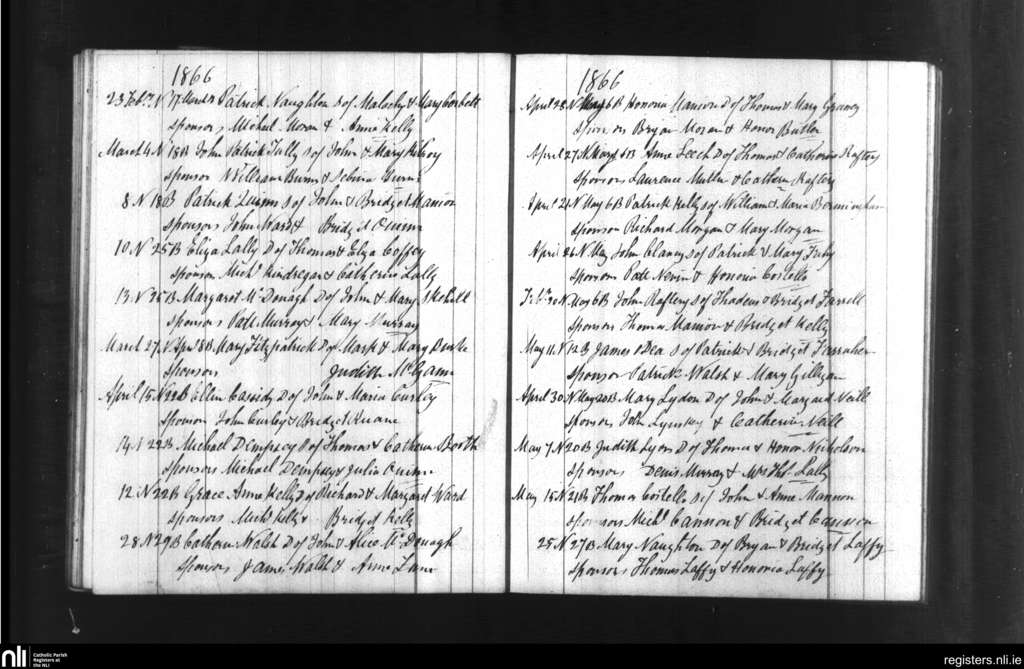 1866
23 Feb. N 17 March B Patrick Naughton S of Malachy & Mary Corbett
sponsors Michael Moran & Anne Kelly
March 4 N 18 B John Patrick Tully S of John & Mary Kilroy
sponsors William Burns &
8 N 18 B Patrick Quinn S of John & Bridget Manion
sponsors John Ward & Bridget Quinn
10 N 25 B Eliza Lally D of Thomas & Eliza Coffey
sponsors Michl Kindregan & Catherine Lally
13 N 25 B Margaret McDonagh D of John & Mary Skehill
sponsors Patt Murray & Mary Murray
March 27 N Apr 8 B Mary Fitzpatrick D of Mark & Mary Burke
sponsors Judith McGann
April 15 N 22 B Ellen Cassidy D of John & Maria Curley
sponsors John Curley & Bridget Ruane
14 N 22 B Michael Dempsey S of Thomas & Catherine Booth
sponsors Michael Dempsey & Julia Quinn
12 N 22 B Grace Anne Kelly D of Richard & Margaret Ward
sponsors Michl Kelly & Bridget Kelly
28 N 29 B Catherine Walsh D of John & Alice McDonagh
sponsors James Walsh & Anne Lane
1866
April 28 N May 6 B Honoria Manion D of Thomas & Mary Greaney
sponsors Bryan Moran & Honor Butler
April 27 N May 6 B Anne Leech D of Thomas & Catherine Raftery
sponsors Laurence Mullin & Catherine Raftery
April 21 N May 6 B Patrick Kelly S of William & Maria Bermingham
sponsors Richard Morgan & Mary Morgan
April 26 N May John Clancy S of Patrick & Mary Fahy
sponsors Patt Nevin & Honoria Costello
N May 6 B John Raftery S of Thadeus & Bridget Farrell
sponsors Thomas Manion & Bridget Kelly
May 11 N 12 B James O Dea S of Patrick & Bridget Farraher
sponsors Patrick Walsh & Mary Gilligan
April 30 N May 20 B Mary Lydon D of John & Margaret Neill
sponsors John & Catherine Neill
May 7 N 20 B Judith Lyons D of Thomas & Honor Nicholson
sponsors Denis Murray & Mrs Ths. Lally
May 15 N 21 B Thomas Costello S of John & Anne Mannon
sponsors Michl Cannon & Bridget Cannon
25 N 27 B Mary Naughton D of Bryan & Bridget Laffy
sponsors Thomas Laffy & Honoria Laffy
nli
Catholic Parish
Registers at
the NLI
registers.nli.ie